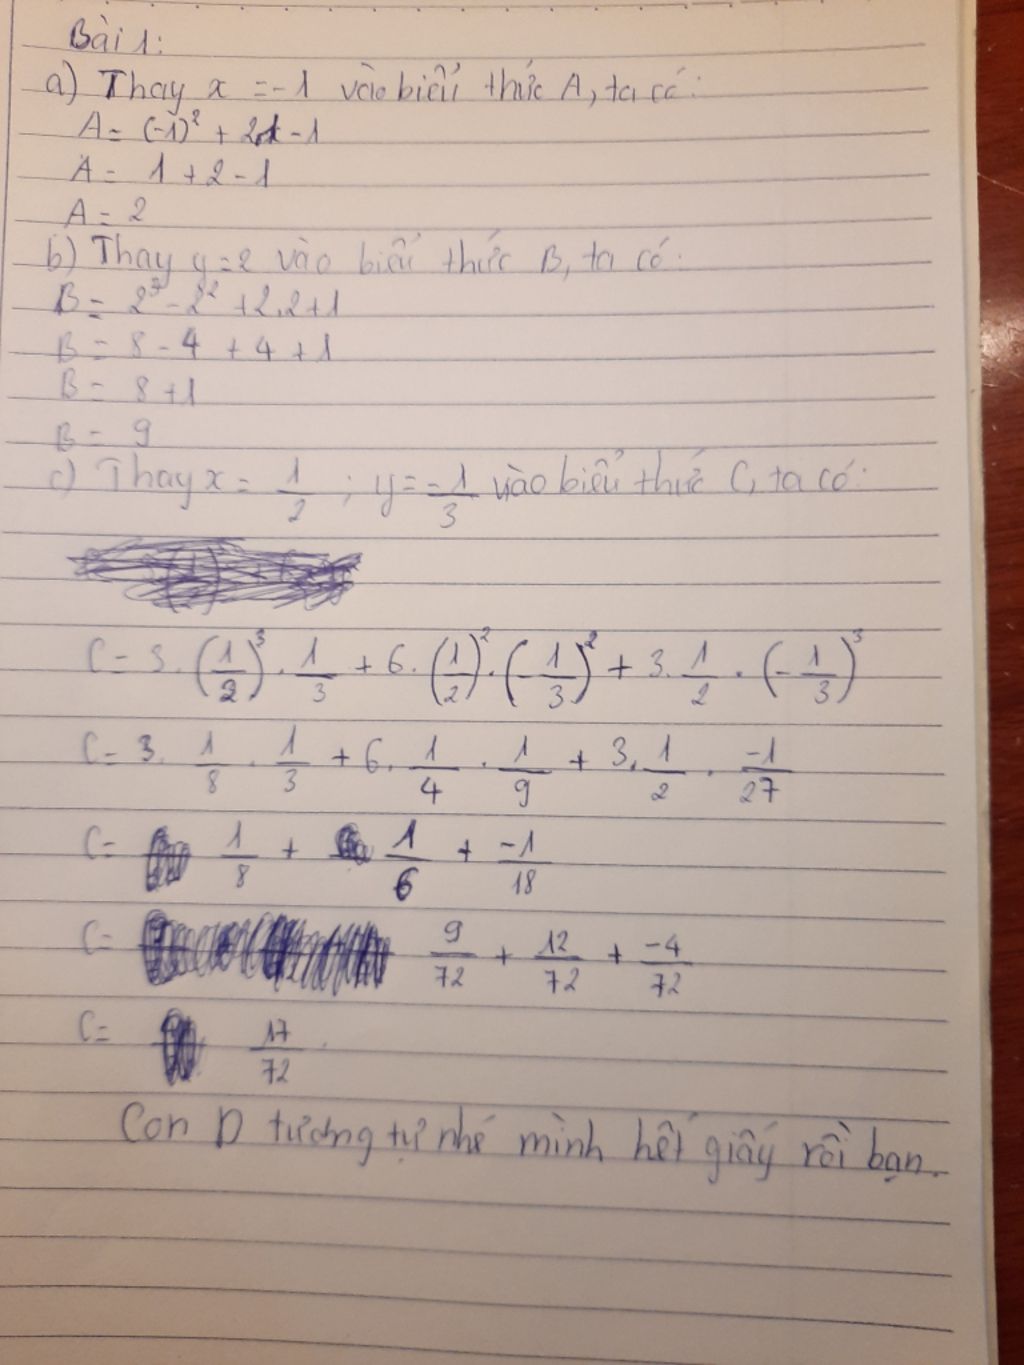 Bài 1:
a) Thay x = -1 vào biểu thức A, ta có:
A = (-1)² + 2.1 - 1
A = 1 + 2 - 1
A = 2
b) Thay y = 2 vào biểu thức B, ta có:
B = 2³ - 2² + 2.2 + 1
B = 8 - 4 + 4 + 1
B = 8 + 1
B = 9
c) Thay x = 1/2 ; y = -1/3 vào biểu thức C, ta có:
C = 3 . (1/2)³ . 1/3 + 6 . (1/2)² . (-1/3)² + 3 . 1/2 . (-1/3)³
C = 3 . 1/8 . 1/3 + 6 . 1/4 . 1/9 + 3 . 1/2 . -1/27
C = 1/8 + 1/6 + -1/18
C = 9/72 + 12/72 + -4/72
C = 17/72
Con D tương tự nhé mình hết giấy rồi bạn.